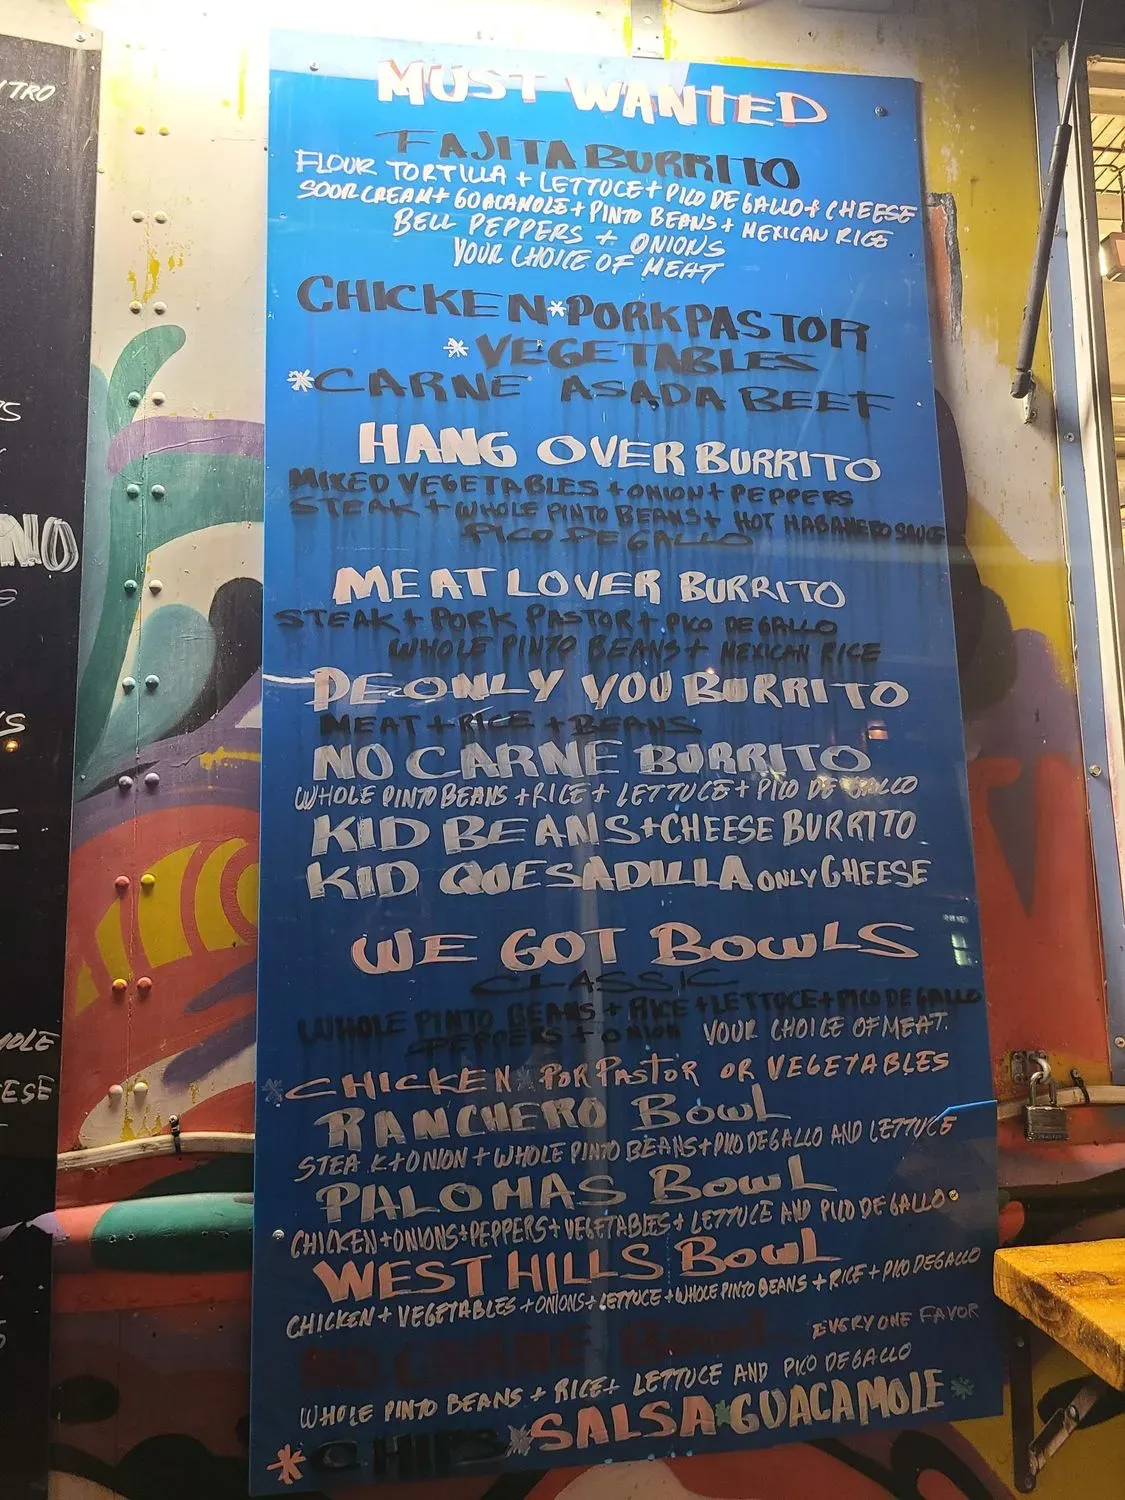 TRO
MUST WANTED
FAJITA BURRITO
FLOUR TORTILLA + LETTUCE + PICO DE GALLO + CHEESE
SOUR CREAM + GOACAMOLE + PINTO BEANS + MEXICAN RICE
BELL PEPPERS + ONIONS
YOUR CHOICE OF MEAT
CHICKEN * PORK PASTOR
* VEGETABLES
* CARNE ASADA BEEF
HANG OVER BURRITO
MIXED VEGETABLES + ONION + PEPPERS
STEAK + WHOLE PINTO BEANS + HOT HABANERO SAUCE
PICO DE GALLO
MEAT LOVER BURRITO
STEAK + PORK PASTOR + PICO DE GALLO
WHOLE PINTO BEANS + MEXICAN RICE
PE ONLY YOU BURRITO
MEAT + RICE + BEANS
NO CARNE BURRITO
WHOLE PINTO BEANS + RICE + LETTUCE + PICO DE GALLO
KID BEANS + CHEESE BURRITO
KID QUESADILLA ONLY CHEESE
WE GOT BOWLS
CLASSIC
WHOLE PINTO BEANS + RICE + LETTUCE + PICO DE GALLO
PEPPERS + ONION YOUR CHOICE OF MEAT.
* CHICKEN * POR PASTOR OR VEGETABLES
RANCHERO BOWL
STEAK + ONION + WHOLE PINTO BEANS + PICO DE GALLO AND LETTUCE
PALOMAS BOWL
CHICKEN + ONIONS + PEPPERS + VEGETABLES + LETTUCE AND PICO DE GALLO
WEST HILLS BOWL
CHICKEN + VEGETABLES + ONIONS + LETTUCE + WHOLE PINTO BEANS + RICE + PICO DE GALLO
NO CARNE BOWL EVERYONE FAVOR
WHOLE PINTO BEANS + RICE + LETTUCE AND PICO DE GALLO
* CHIPS * SALSA * GUACAMOLE *